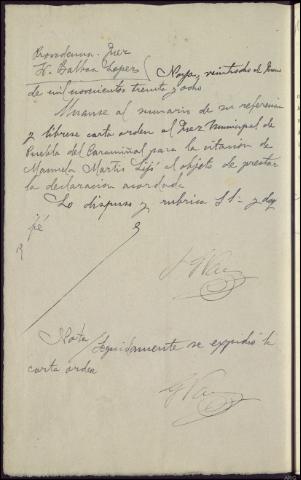 Providencia Juez
H. Balboa Lopez / Noya, veintiocho de
de mil novecientos treinta y ocho
Unanse al sumario de su referencia
y librese carta orden al Juez Municipal de
Puebla del Caramiñal para la citación de
Manuela Martis al objeto de prestar
la declaración acordada
Lo dispuso y rubrica S.S. y doy
fé
Nota / Seguidamente se expidió la
carta orden